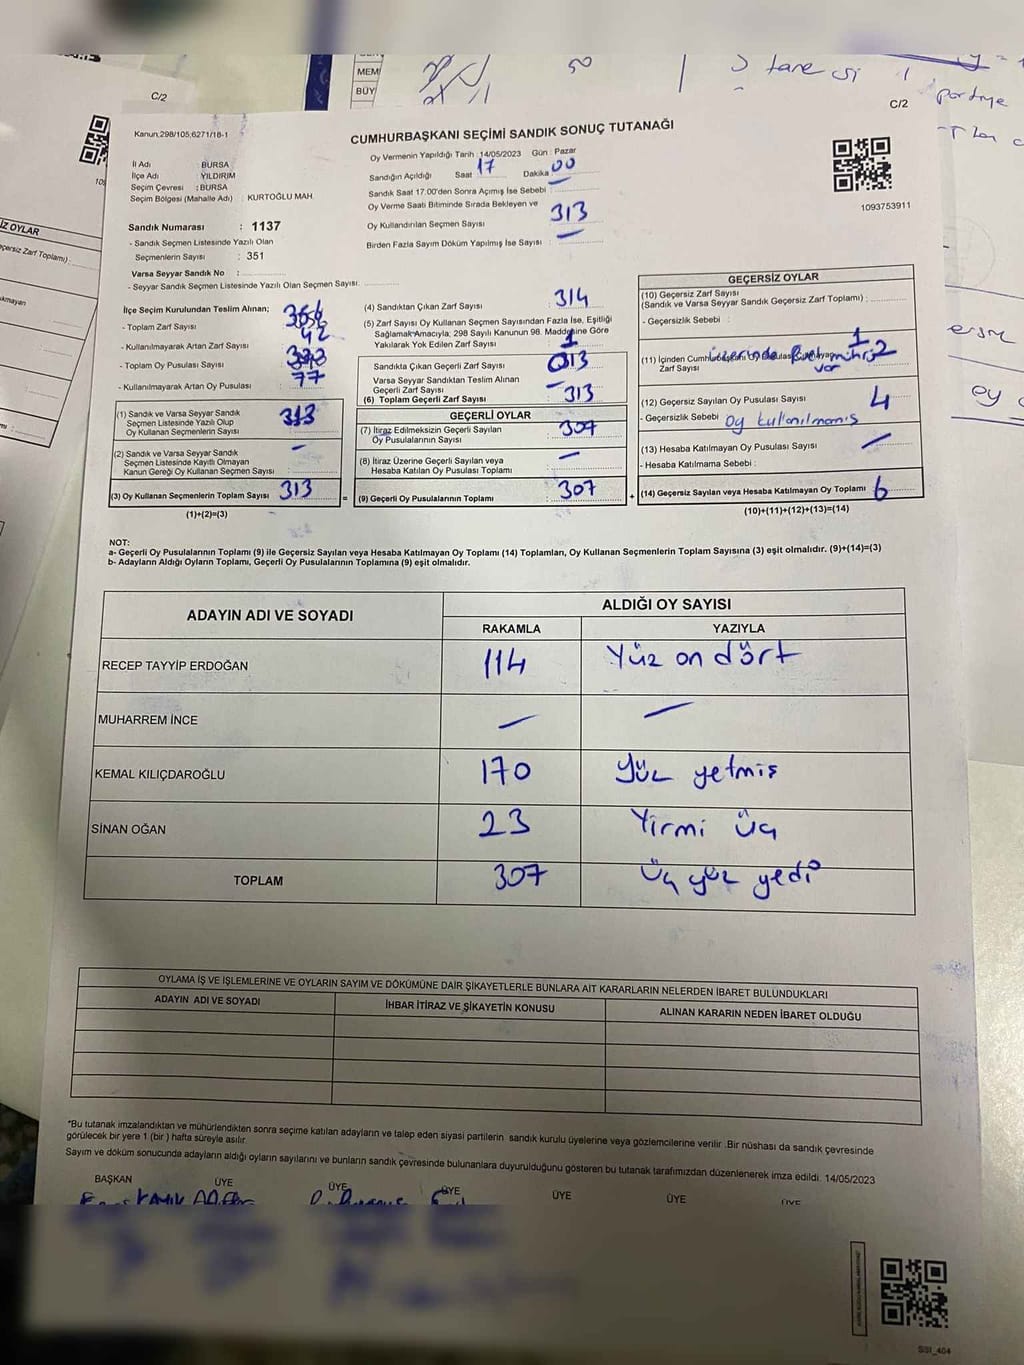 C/2
MEM
BÜY
50
3 tane
C/2
Kanun,298/105,6271/18-1
CUMHURBAŞKANI SEÇİMİ SANDIK SONUÇ TUTANAĞI
1093753911
İl Adı : BURSA
İlçe Adı : YILDIRIM
Seçim Çevresi : BURSA
Seçim Bölgesi (Mahalle Adı) : KURTOĞLU MAH
Sandık Numarası : 1137
- Sandık Seçmen Listesinde Yazılı Olan
Seçmenlerin Sayısı : 351
Varsa Seyyar Sandık No :
- Seyyar Sandık Seçmen Listesinde Yazılı Olan Seçmen Sayısı:
Oy Vermenin Yapıldığı Tarih : 14/05/2023 Gün : Pazar
Sandığın Açıldığı Saat 17 Dakika 00
Sandık Saat 17.00'den Sonra Açımış İse Sebebi :
Oy Verme Saati Bitiminde Sırada Bekleyen ve
Oy Kullandırılan Seçmen Sayısı : 313
Birden Fazla Sayım Döküm Yapılmış İse Sayısı : —
İlçe Seçim Kurulundan Teslim Alınan;
- Toplam Zarf Sayısı :
- Kullanılmayarak Artan Zarf Sayısı : 42
- Toplam Oy Pusulası Sayısı :
- Kullanılmayarak Artan Oy Pusulası : 77
(1) Sandık ve Varsa Seyyar Sandık
Seçmen Listesinde Yazılı Olup
Oy Kullanan Seçmenlerin Sayısı : 313
(2) Sandık ve Varsa Seyyar Sandık
Seçmen Listesinde Kayıtlı Olmayan
Kanun Gereği Oy Kullanan Seçmen Sayısı : —
(3) Oy Kullanan Seçmenlerin Toplam Sayısı : 313
(1)+(2)=(3)
(4) Sandıktan Çıkan Zarf Sayısı : 314
(5) Zarf Sayısı Oy Kullanan Seçmen Sayısından Fazla İse, Eşitliği
Sağlamak Amacıyla, 298 Sayılı Kanunun 98. Maddesine Göre
Yakılarak Yok Edilen Zarf Sayısı : 1
Sandıkta Çıkan Geçerli Zarf Sayısı : 313
Varsa Seyyar Sandıktan Teslim Alınan
Geçerli Zarf Sayısı : —
(6) Toplam Geçerli Zarf Sayısı : 313
GEÇERLİ OYLAR
(7) İtiraz Edilmeksizin Geçerli Sayılan
Oy Pusulalarının Sayısı : 307
(8) İtiraz Üzerine Geçerli Sayılan veya
Hesaba Katılan Oy Pusulası Toplamı : —
= (9) Geçerli Oy Pusulalarının Toplamı : 307
GEÇERSİZ OYLAR
(10) Geçersiz Zarf Sayısı
(Sandık ve Varsa Seyyar Sandık Geçersiz Zarf Toplamı) :
- Geçersizlik Sebebi :
(11) İçinden Zarf Sayısı 2
üzerinde var
(12) Geçersiz Sayılan Oy Pusulası Sayısı : 4
- Geçersizlik Sebebi : Oy kullanılmamış
(13) Hesaba Katılmayan Oy Pusulası Sayısı : —
- Hesaba Katılmama Sebebi :
+ (14) Geçersiz Sayılan veya Hesaba Katılmayan Oy Toplamı 6
(10)+(11)+(12)+(13)=(14)
NOT:
a- Geçerli Oy Pusulalarının Toplamı (9) ile Geçersiz Sayılan veya Hesaba Katılmayan Oy Toplamı (14) Toplamları, Oy Kullanan Seçmenlerin Toplam Sayısına (3) eşit olmalıdır. (9)+(14)=(3)
b- Adayların Aldığı Oyların Toplamı, Geçerli Oy Pusulalarının Toplamına (9) eşit olmalıdır.
ADAYIN ADI VE SOYADI
ALDIĞI OY SAYISI
RAKAMLA YAZIYLA
RECEP TAYYİP ERDOĞAN 114 Yüz on dört
MUHARREM İNCE — —
KEMAL KILIÇDAROĞLU 170 Yüz yetmiş
SİNAN OĞAN 23 Yirmi üç
TOPLAM 307 Üç yüz yedi
OYLAMA İŞ VE İŞLEMLERİNE VE OYLARIN SAYIM VE DÖKÜMÜNE DAİR ŞİKAYETLERLE BUNLARA AİT KARARLARIN NELERDEN İBARET BULUNDUKLARI
ADAYIN ADI VE SOYADI İHBAR İTİRAZ VE ŞİKAYETİN KONUSU ALINAN KARARIN NEDEN İBARET OLDUĞU
*Bu tutanak imzalandıktan ve mühürlendikten sonra seçime katılan adayların ve talep eden siyasi partilerin sandık kurulu üyelerine veya gözlemcilerine verilir .Bir nüshası da sandık çevresinde
görülecek bir yere 1 (bir ) hafta süreyle asılır.
Sayım ve döküm sonucunda adayların aldığı oyların sayılarını ve bunların sandık çevresinde bulunanlara duyurulduğunu gösteren bu tutanak tarafımızdan düzenlenerek imza edildi. 14/05/2023
BAŞKAN ÜYE ÜYE ÜYE ÜYE ÜYE ÜYE
SSI_404